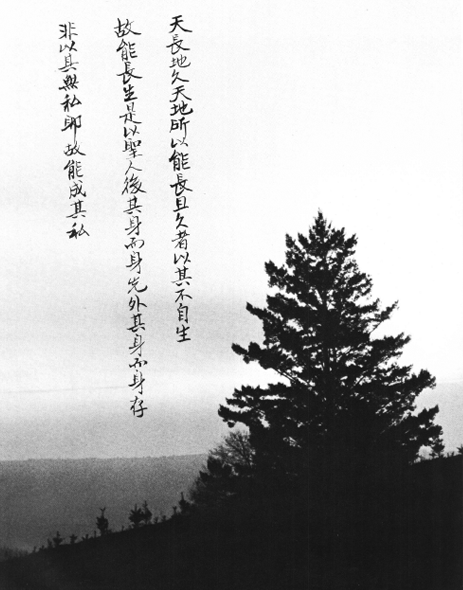 天長地久天地所以能長且久者以其不自生
故能長生是以聖人後其身而身先外其身而身存
非以其無私耶故能成其私